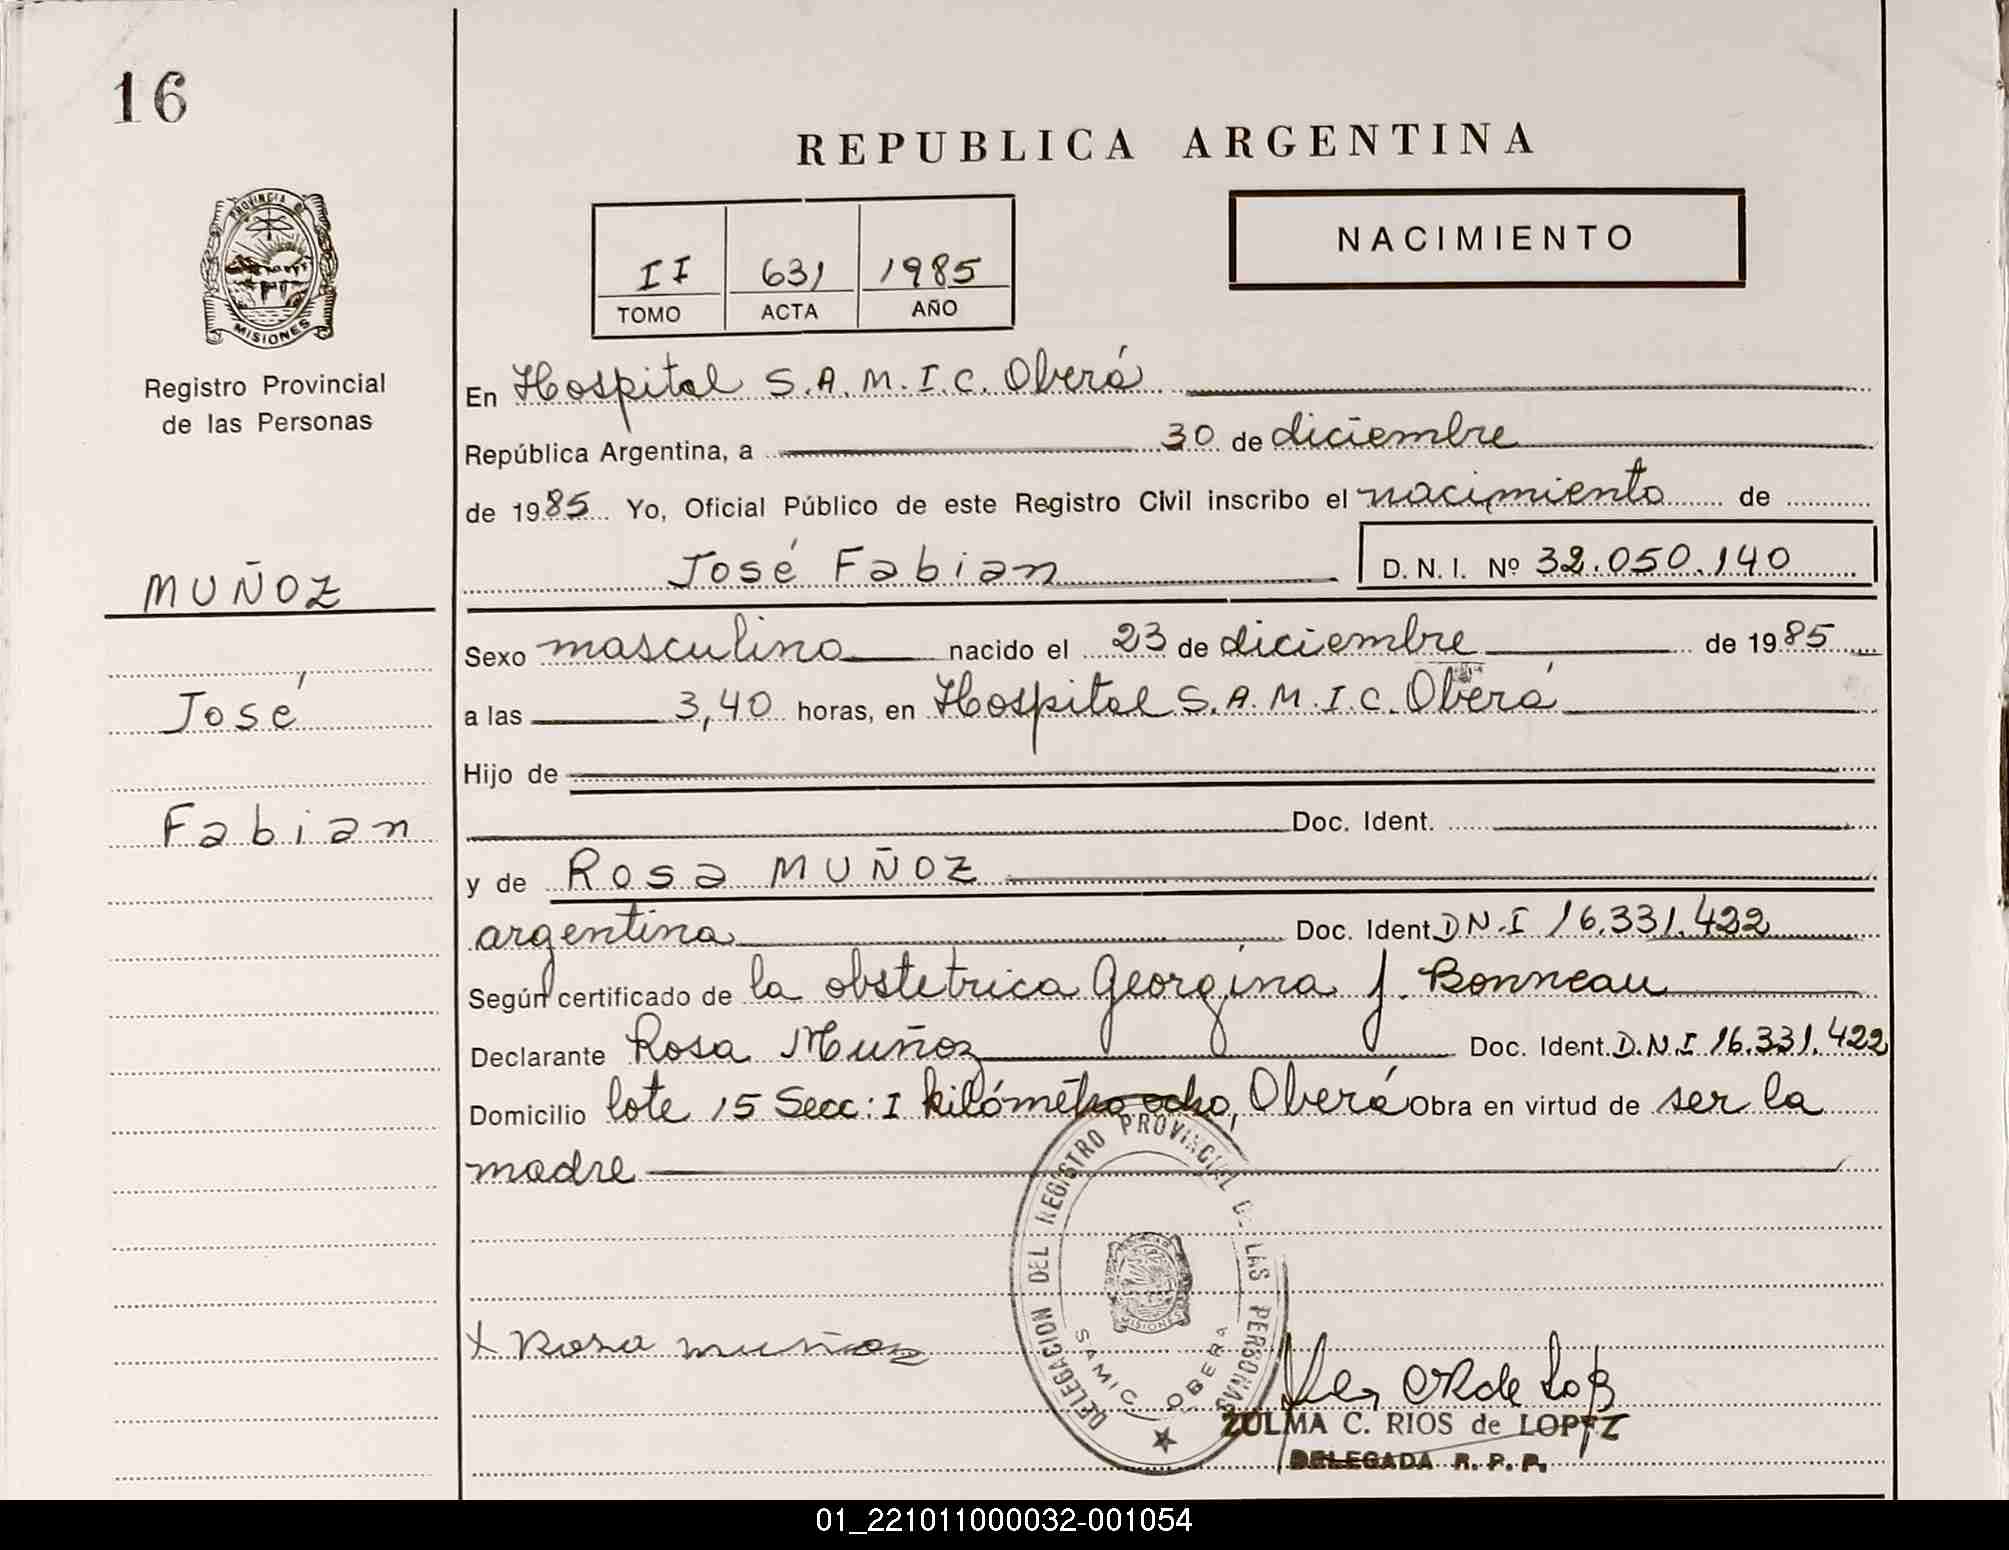 16
REPUBLICA ARGENTINA
PROVINCIA DE
MISIONES
Registro Provincial
de las Personas
NACIMIENTO
II 631 1985
TOMO ACTA AÑO
En Hospital S.A.M.I.C. Oberá
República Argentina, a 30 de diciembre
de 1985 Yo, Oficial Público de este Registro Civil inscribo el nacimiento de
José Fabian D.N.I. Nº 32.050.140
MUÑOZ
José
Fabian
Sexo masculino nacido el 23 de diciembre de 1985
a las 3,40 horas, en Hospital S.A.M.I.C. Oberá
Hijo de
Doc. Ident.
y de Rosa MUÑOZ
argentina Doc. Ident D.N.I 16.331.422
Según certificado de la obstetrica Georgina J. Bonneau
Declarante Rosa Muñoz Doc. Ident. D.N.I 16.331.422
Domicilio lote 15 Secc: I kilómetro ocho, Oberá Obra en virtud de ser la
madre
DELEGACION DEL REGISTRO PROVINCIAL DE LAS PERSONAS
MISIONES
SAMIC OBERA
x Rosa muñoz
ZULMA C. RIOS de LOPEZ
DELEGADA R. P. P.
01_221011000032-001054